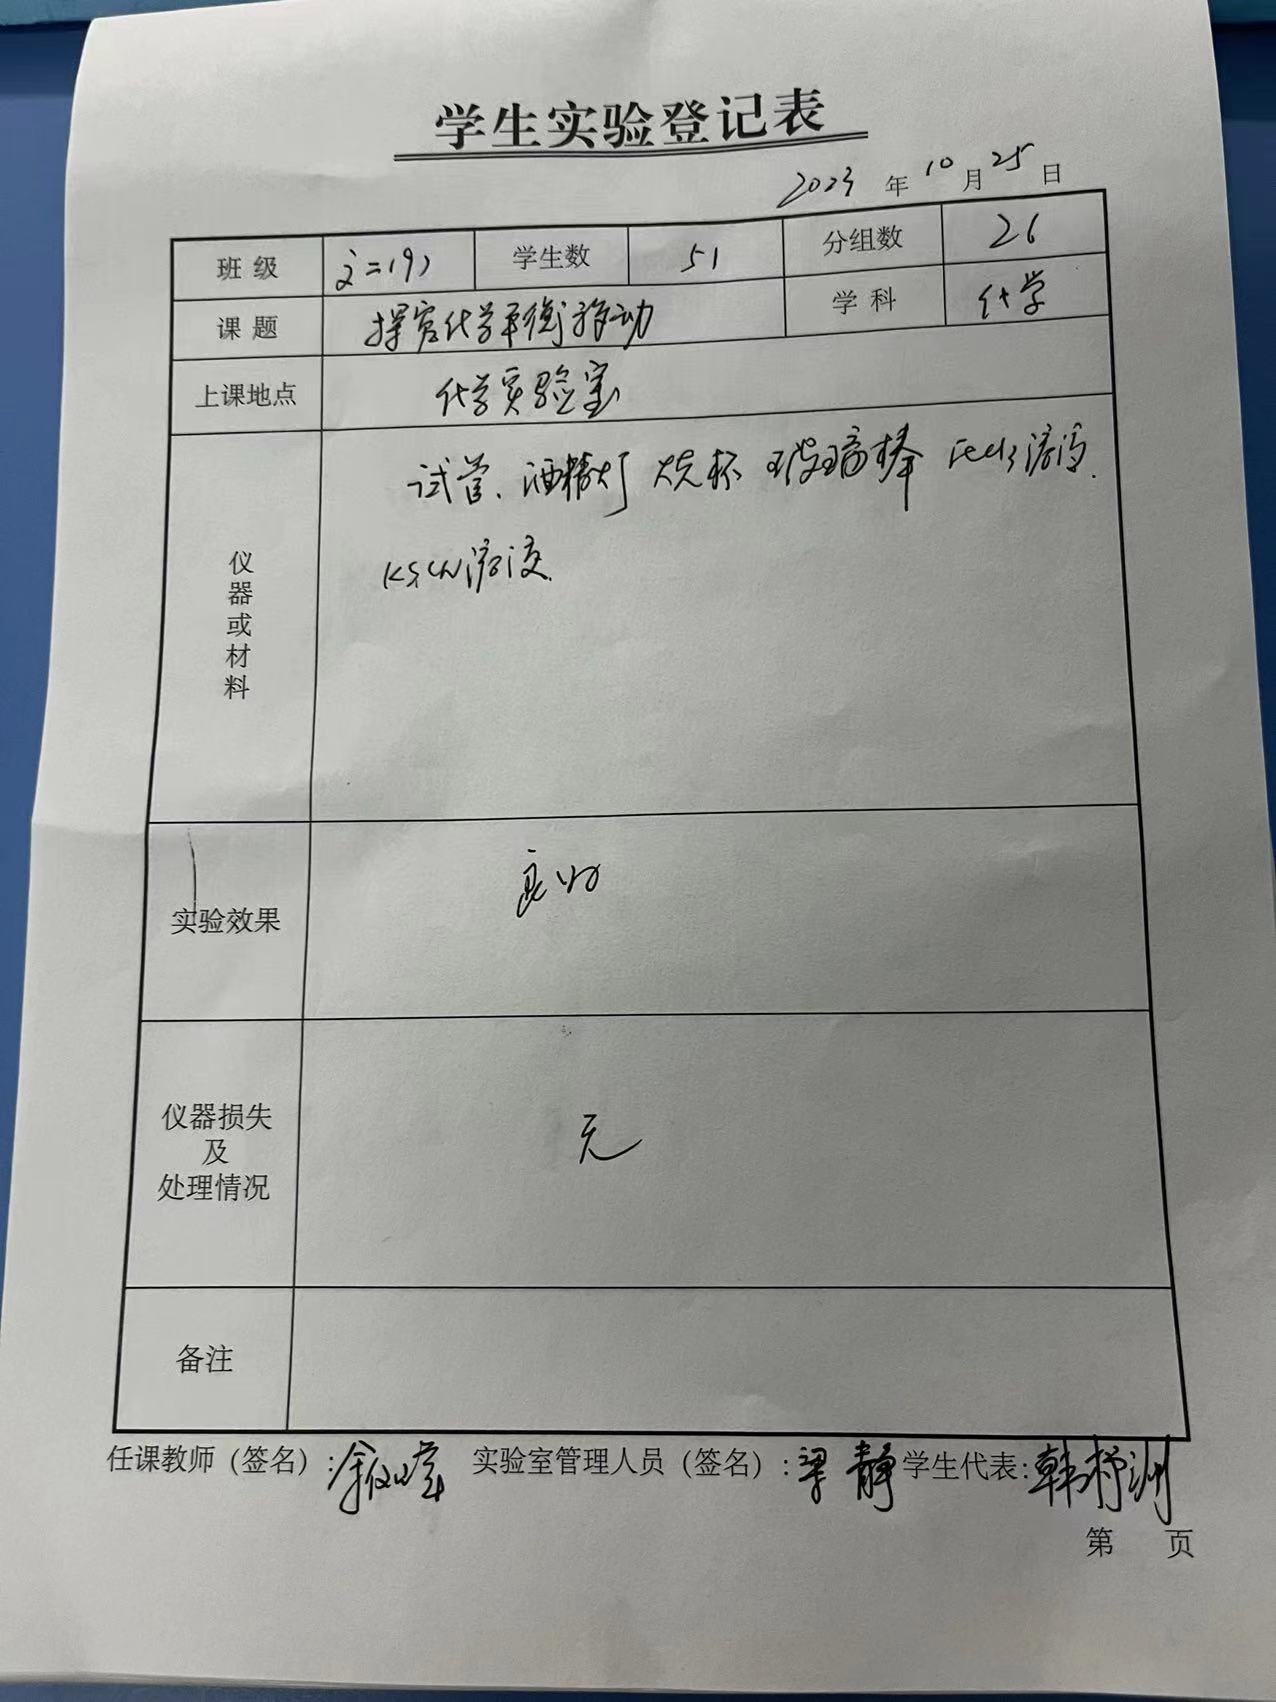 学生实验登记表
2023 年 10 月 25 日
班 级 二(9) 学生数 51 分组数 26
课 题 探究化学平衡移动 学 科 化学
上课地点 化学实验室
仪器或材料 试管、酒精灯 烧杯 玻璃棒 FeCl3溶液.
KSCN溶液.
实验效果 良好
仪器损失
及
处理情况
无
备注
任课教师（签名）: 实验室管理人员（签名）: 梁静 学生代表: 韩
第 页